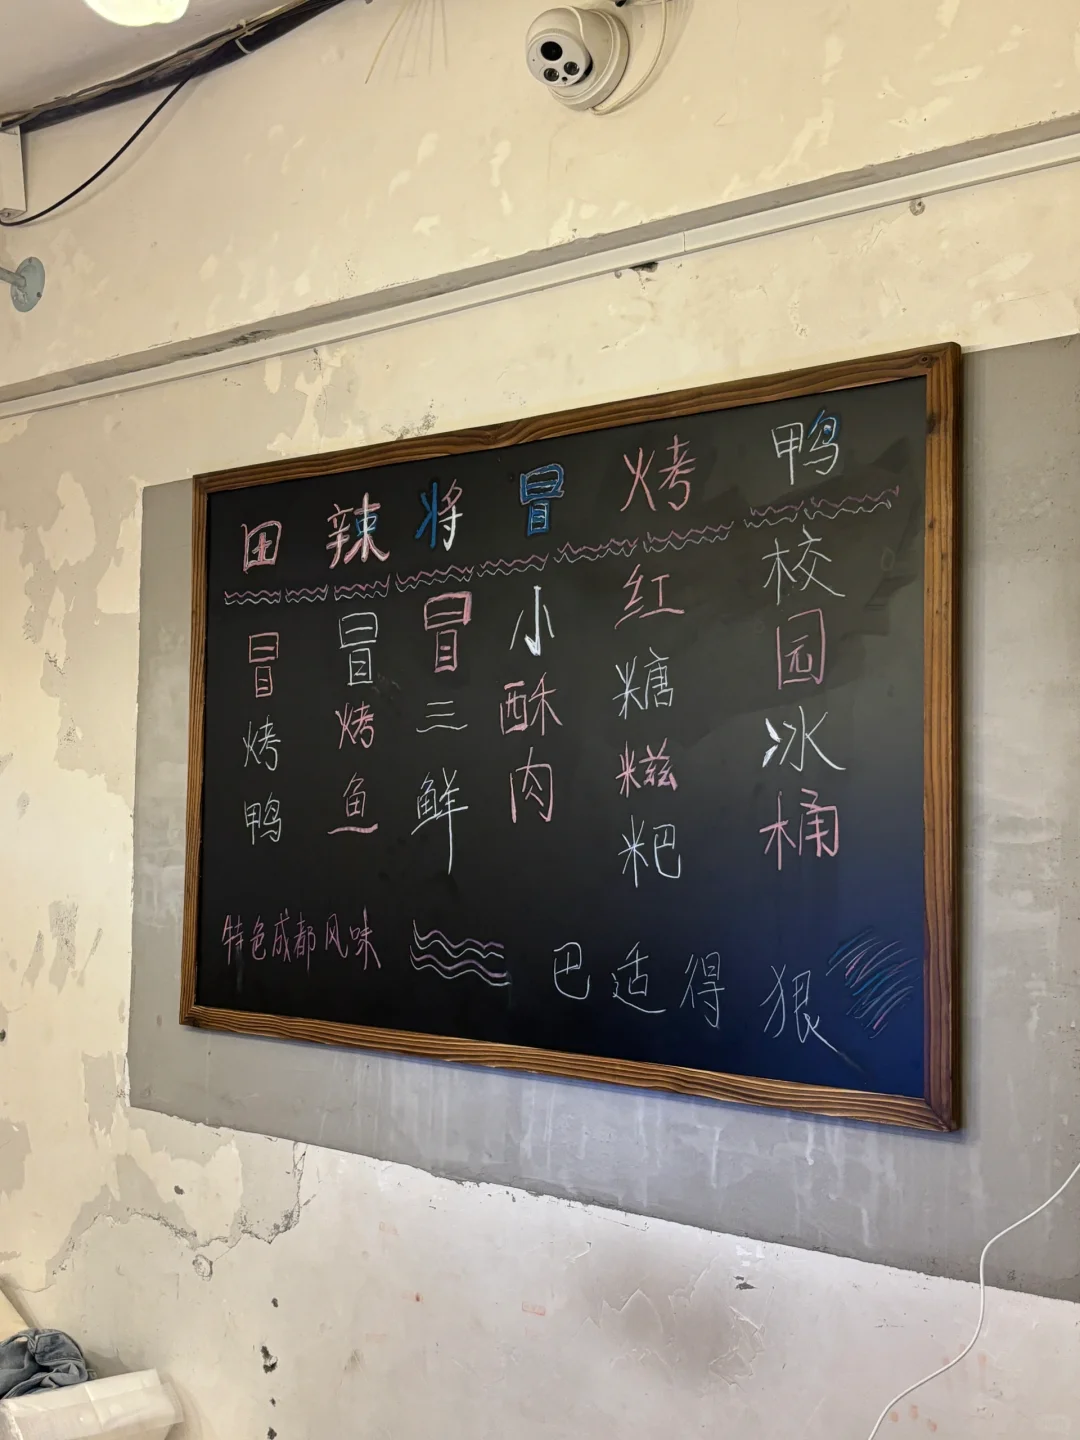 田辣将冒烤鸭
冒烤鸭
冒烤鱼
冒三鲜
小酥肉
红糖糍粑
校园冰桶
特色成都风味
巴适得狠